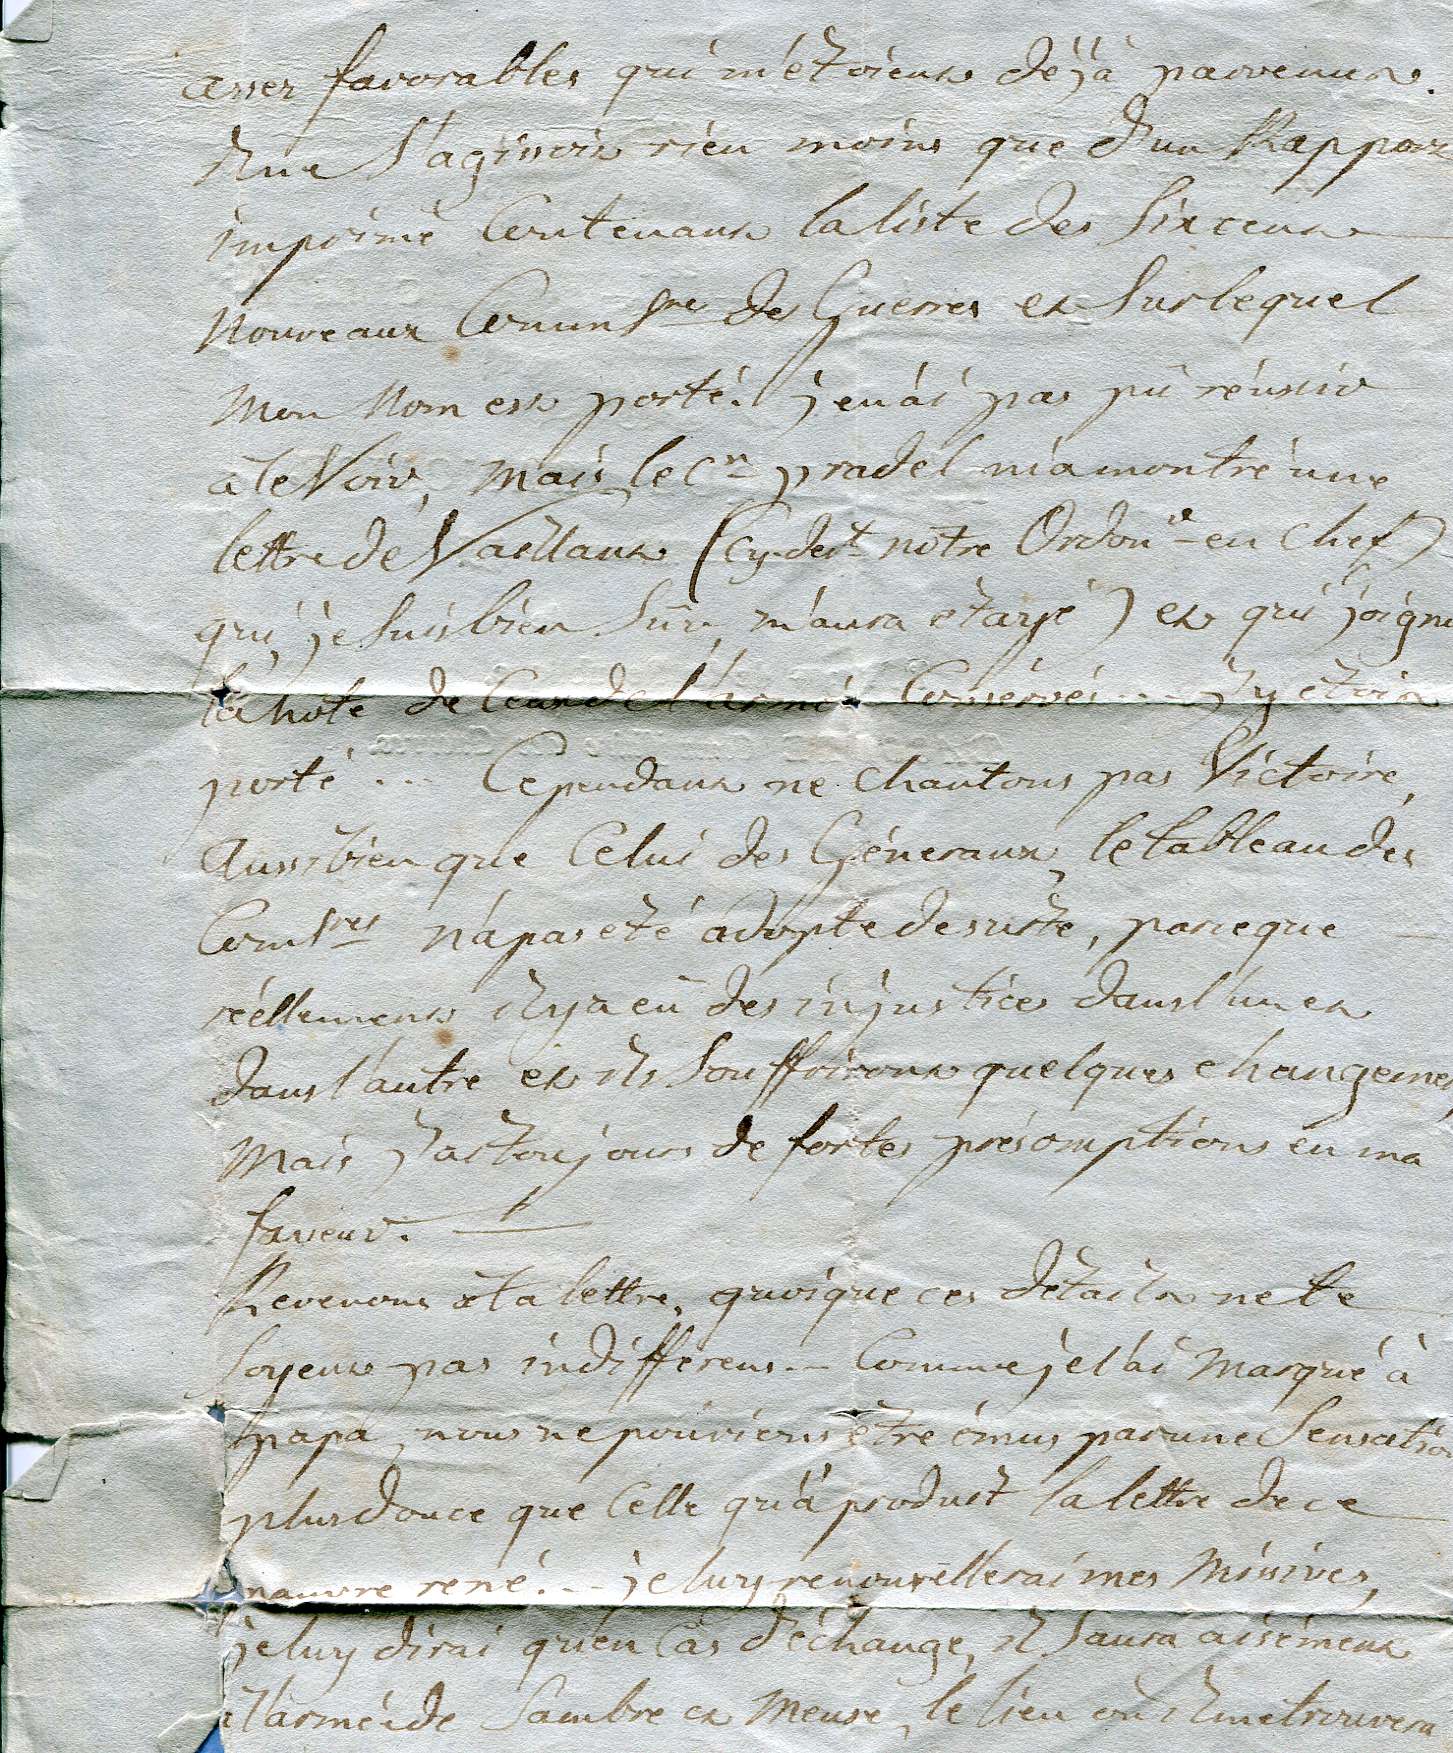 assez favorables qui m'étoient déjà parvenus.
Il ne s'agissoit rien moins que d'un Rapport
imprimé Contenant la liste des Six cent
nouveaux Comm S.re des Guerres et sur lequel
mon nom est porté. je n'ai pas pû réussir
à le Voir, mais le C.n pradel m'a montré une
lettre de Vaillant (cy-dev.t notre Ordon.r en Chef)
qui, je suis bien sûr, m'aura étayé) et qui joignoit
la note de Ceux de l'armé Conservés ... j'y étois
porté .... Cependant ne chantons pas Victoire,
Aussi bien que Celui des Géneraux, le tableau des
Com S.res n'a pas été adopté de suite, parceque
réellement il y a eû des injustices dans l'un et
dans l'autre et ils souffriront quelques changemens
Mais j'ai toujours de fortes présomptions en ma
faveur.
Revenons à ta lettre, quoique ces détails ne te
soyent pas indifférens... Comme je l'ai marqué à
papa, nous ne pouvions être émus par une Sensation
plus douce que Celle qu'à produit la lettre de ce
pauvre rené. - je luy renouvellerai mes Missives,
je luy dirai qu'en Cas d'échange, il saura aisément
à l'armée de Sambre et Meuse, le lieu où il me trouvera